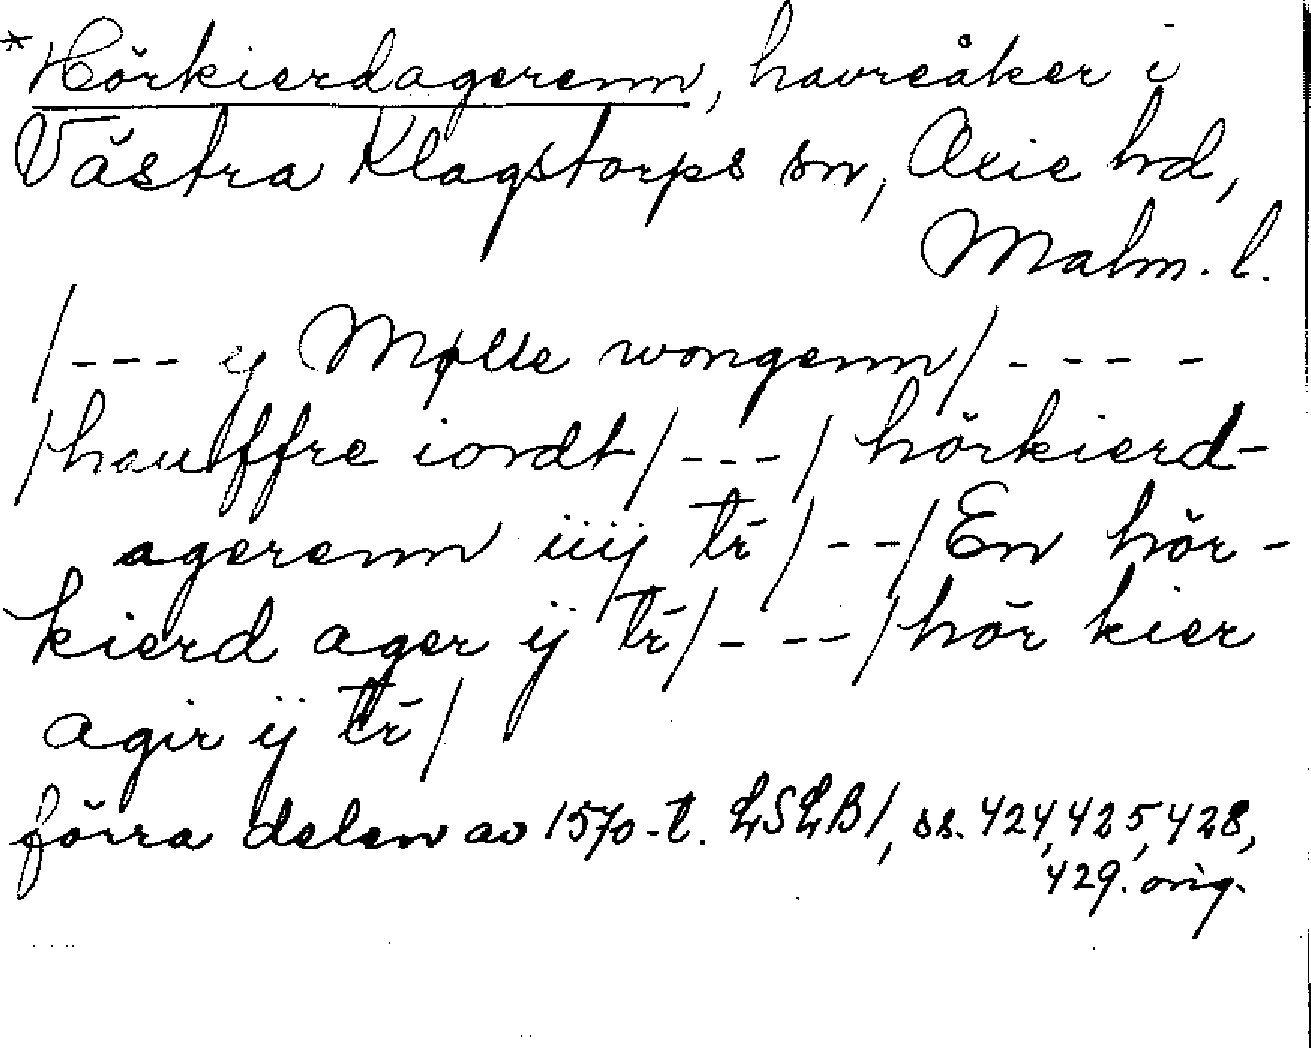 *Hörkierdagerenn, havreåker i
Västra Klagstorps sn, Oxie hd,
Malm. l.
/--- y Mølle wongenn/ - - - -
/hauffre iordt/---/ hörkierd-
agerenn iiij tr̄ /--/En hör-
kierd ager ij tr̄/---/hör kier
agir ij tr̄/
förra delen av 1570-t. LSLB1, ss. 424, 425, 428,
429. orig.